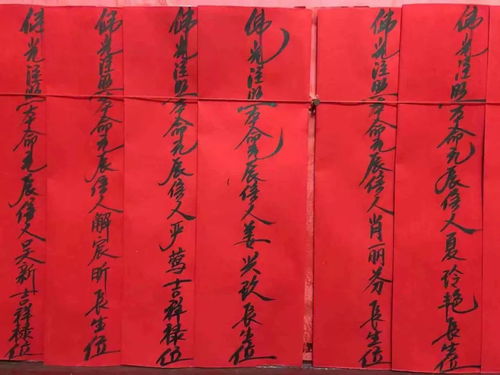 佛光注照本命元辰信人夏玲艳長生位
佛光注照本命元辰信人肖丽芬長生位
佛光注照本命元辰信人姜兴玖長生位
佛光注照本命元辰信人严莺吉祥禄位
佛光注照本命元辰信人解宸昕長生位
佛光注照本命元辰信人吴新吉祥禄位